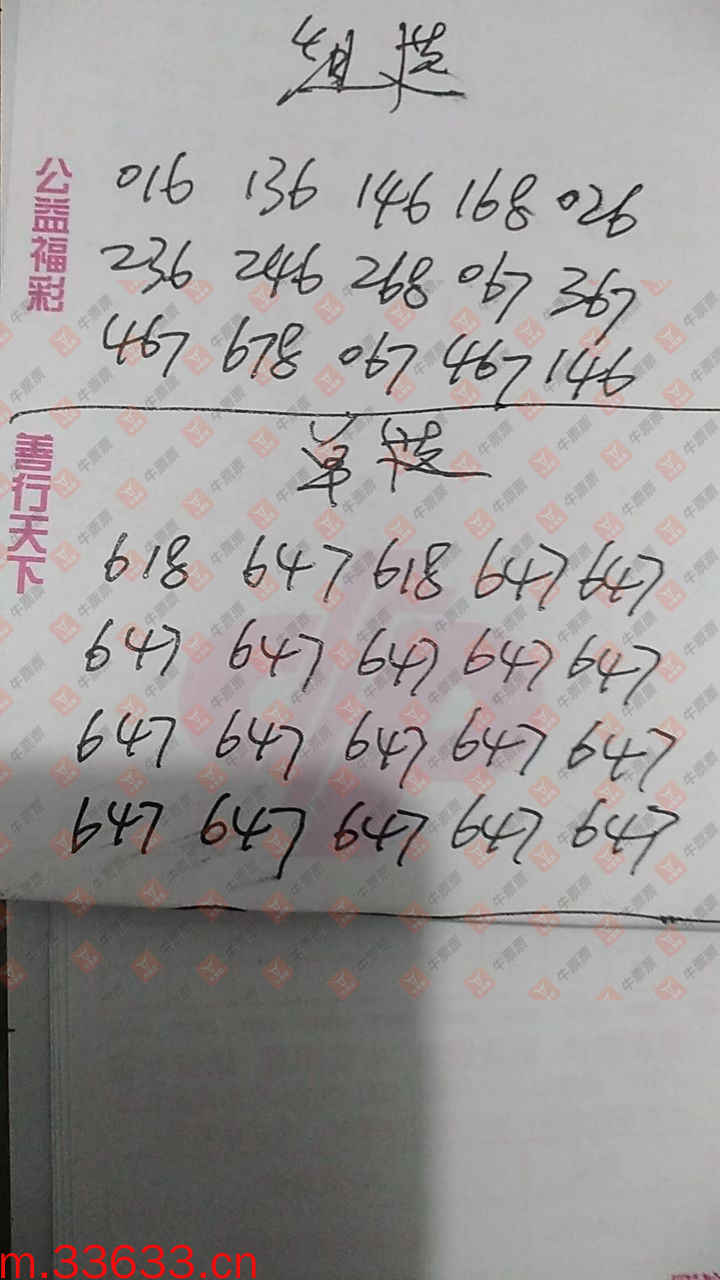 组选
公益福彩
016 136 146 168 026
236 246 268 067 367
467 678 067 467 146
善行天下
单选
618 647 618 647 647
647 647 647 647 647
647 647 647 647 647
647 647 647 647 647
m.33633.cn